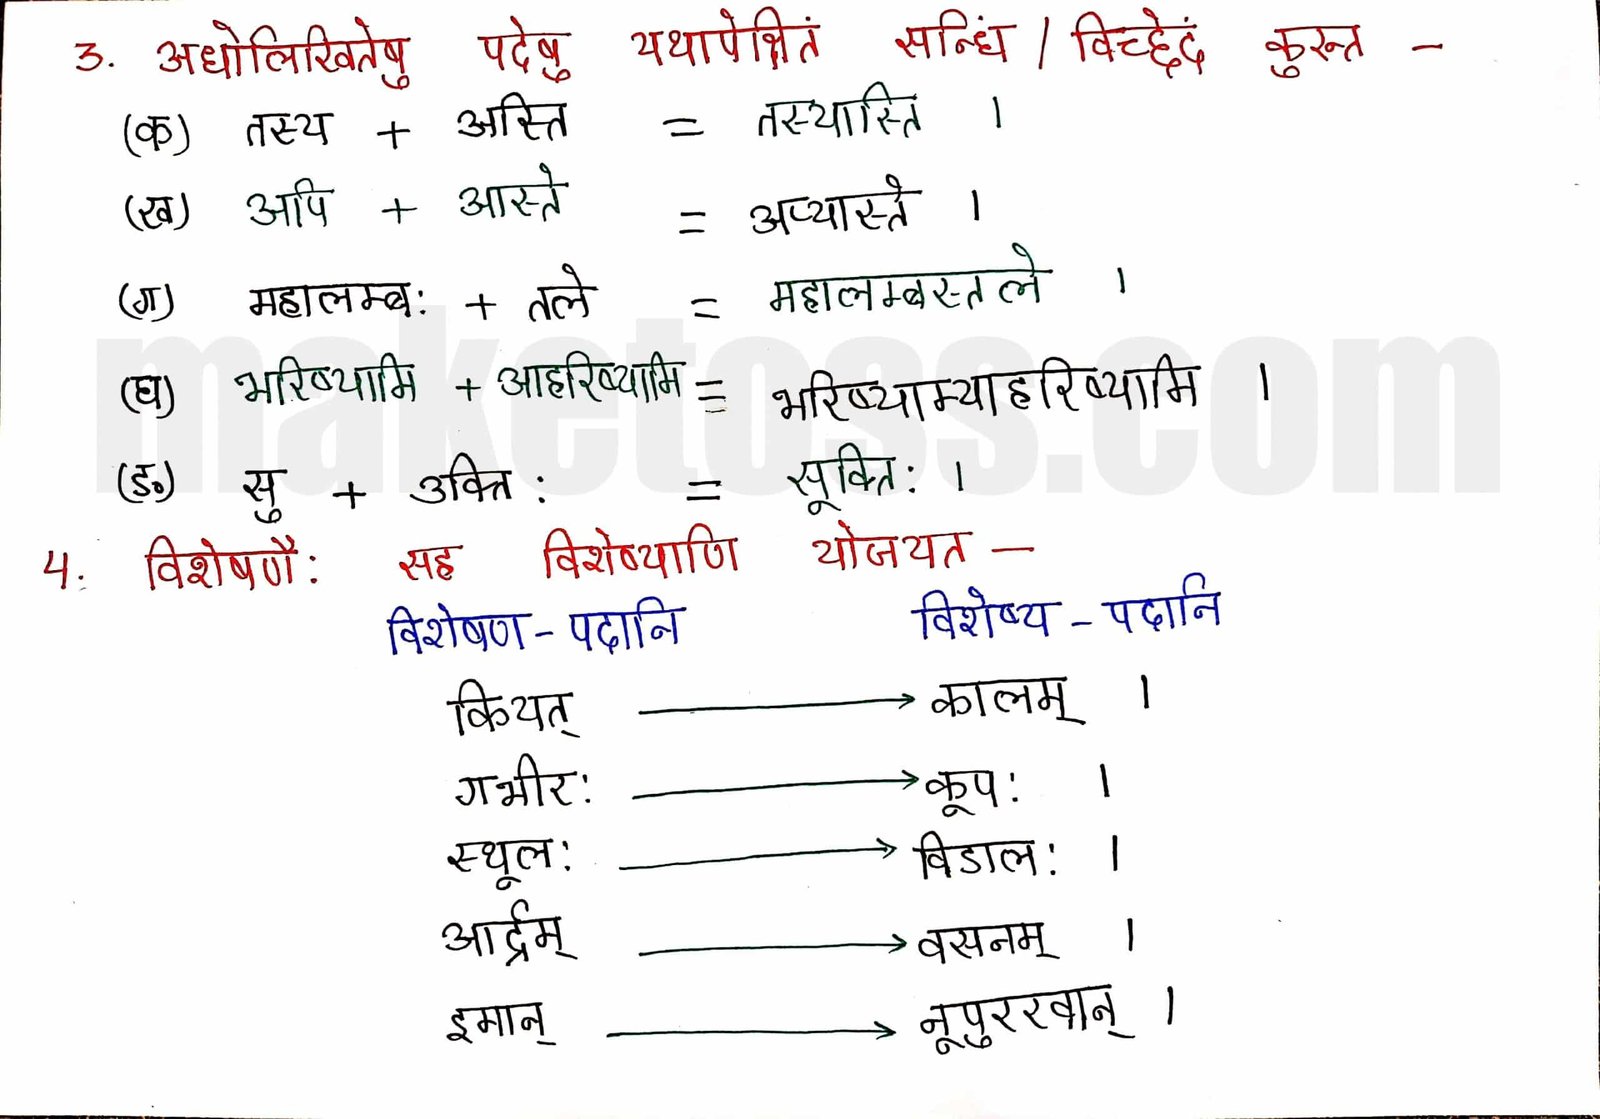 3. अधोलिखितेषु पदेषु यथापेक्षितं सन्धिं / विच्छेदं कुरुत –
(क) तस्य + अस्ति = तस्यास्ति ।
(ख) अपि + आस्ते = अप्यास्ते ।
(ग) महालम्बः + तले = महालम्बस्तले ।
(घ) भरिष्यामि + आहरिष्यामि = भरिष्याम्याहरिष्यामि ।
(ङ) सु + उक्तिः = सूक्तिः ।
4. विशेषणैः सह विशेष्याणि योजयत –
विशेषण - पदानि विशेष्य - पदानि
कियत् → कालम् ।
गभीरः → कूपः ।
स्थूलः → विडालः ।
आर्द्रम् → वसनम् ।
इमान् → नूपुररवान् ।
maketoss.com